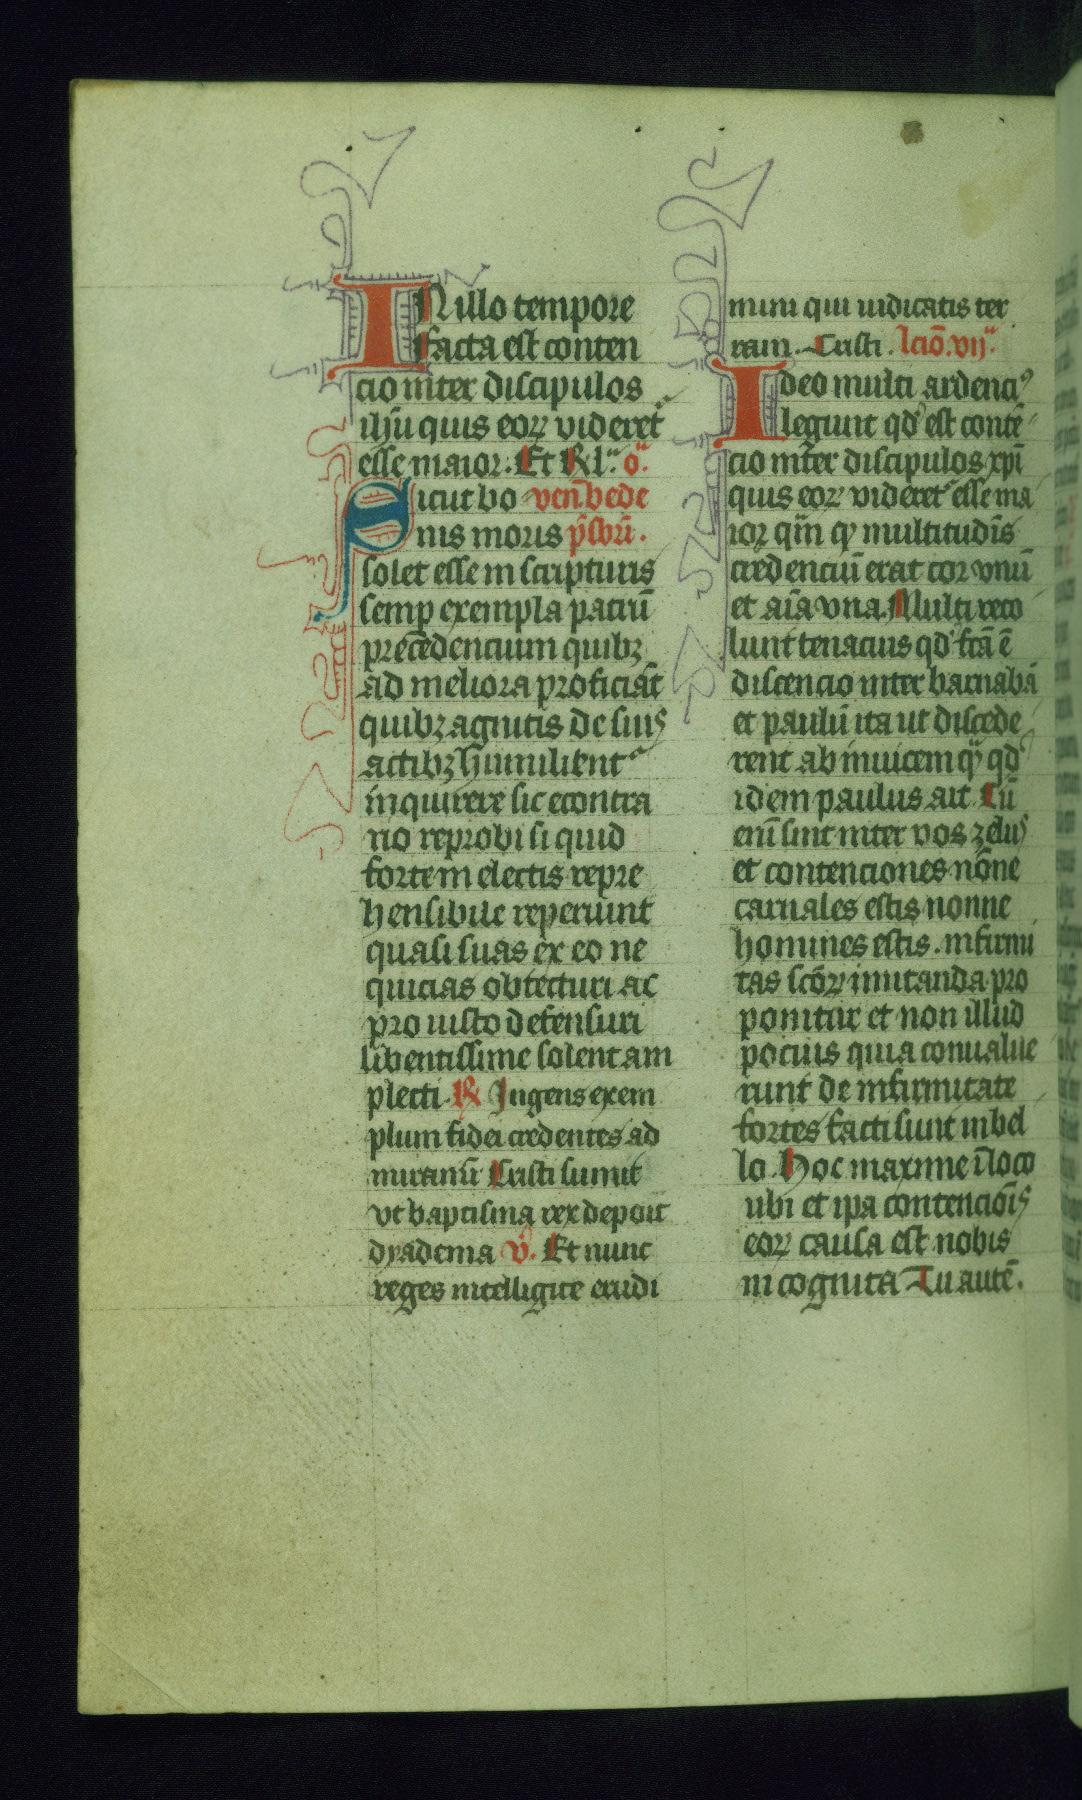 IN illo tempore
Facta est conten
cio inter discipulos
ihū quis eoꝝ videret᷑
esse maior. Et Rl̅ o̅
Sicut bo ven̄. bede
nis moris p̄sbrī.
solet esse in scripturis
semꝑ exempla patrū
precedencium quibꝫ
ad meliora proficiāt
quibꝫ agnitis de suis
actibꝫ humilient᷑
inquirere sic econtra
rio reprobi si quid
forte in electis repre
hensibile reperiunt
quasi suas ex eo ne
quicias obtecturi ac
pro iusto defensuri
libentissime solent am
plecti. R Ingens exem
plum fidei credentes ad
miramū Cristi sumit
vt baptisma rex deponit
dyadema V̄. Et nunc
reges intelligite erudi
mini qui iudicatis ter
ram. Cristi. lcīo. vij
Ideo multi ardenciꝰ
legunt qd̓ est contē
cio inter discipulos xp̄i
quis eoꝝ videret᷑ esse ma
ior qm̄ ꝙ multitudīs
credenciū erat cor vnū
et aīa vna. Multi reco
lunt tenacius qd̓ fcā ē
discencio inter barnabā
et paulū ita ut discede
rent ab inuicem qͣ qd̓
idem paulus ait Cū
enī sint inter vos zelus
et contenciones nōne
carnales estis nonne
homines estis. infirmi
tas scōꝝ imitanda pro
ponitur et non illud
pocius quia conualue
runt de infirmitate
fortes facti sunt in bel
lo. Hoc maxime ī loco
ubi et ipa contencionīs
eoꝝ causa est nobis
incognita Tu autē.